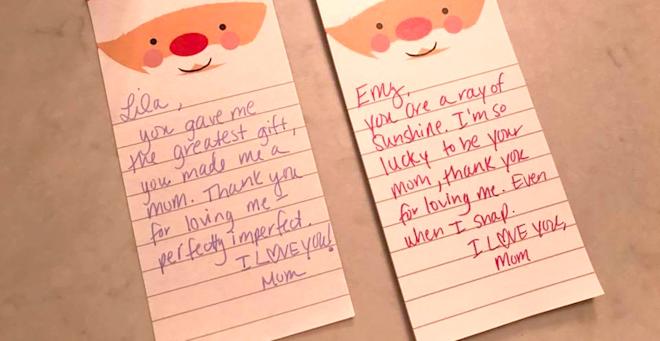 Lila,
you gave me
the greatest gift,
you made me a
mum. Thank you
for loving me -
perfectly imperfect.
I LOVE YOU!
Mom
Emy,
you are a ray of
sunshine. I'm so
lucky to be your
mom, thank you
for loving me. Even
when I snap.
I LOVE YOU,
Mom